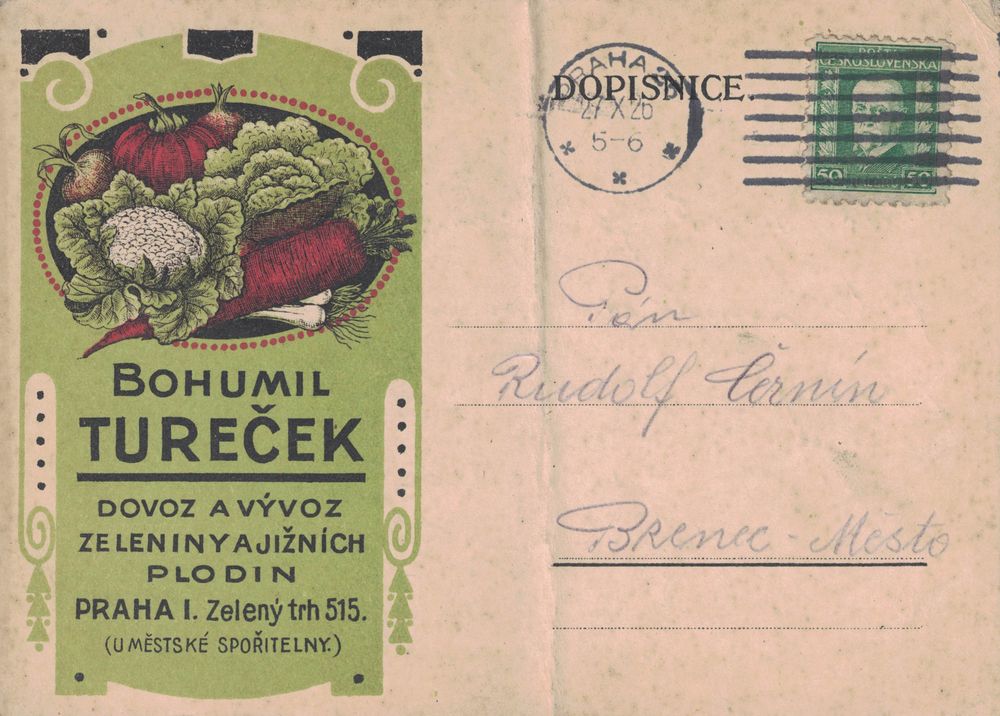 BOHUMIL
TUREČEK
DOVOZ A VÝVOZ
ZELENINY A JIŽNÍCH
PLODIN
PRAHA I. Zelený trh 515.
(U MĚSTSKÉ SPOŘITELNY.)
DOPISNICE.
PRAHA
27 X 26
5-6
POŠTA
ČESKOSLOVENSKÁ
50 50
Pán
Rudolf Černín
Brenec - Město